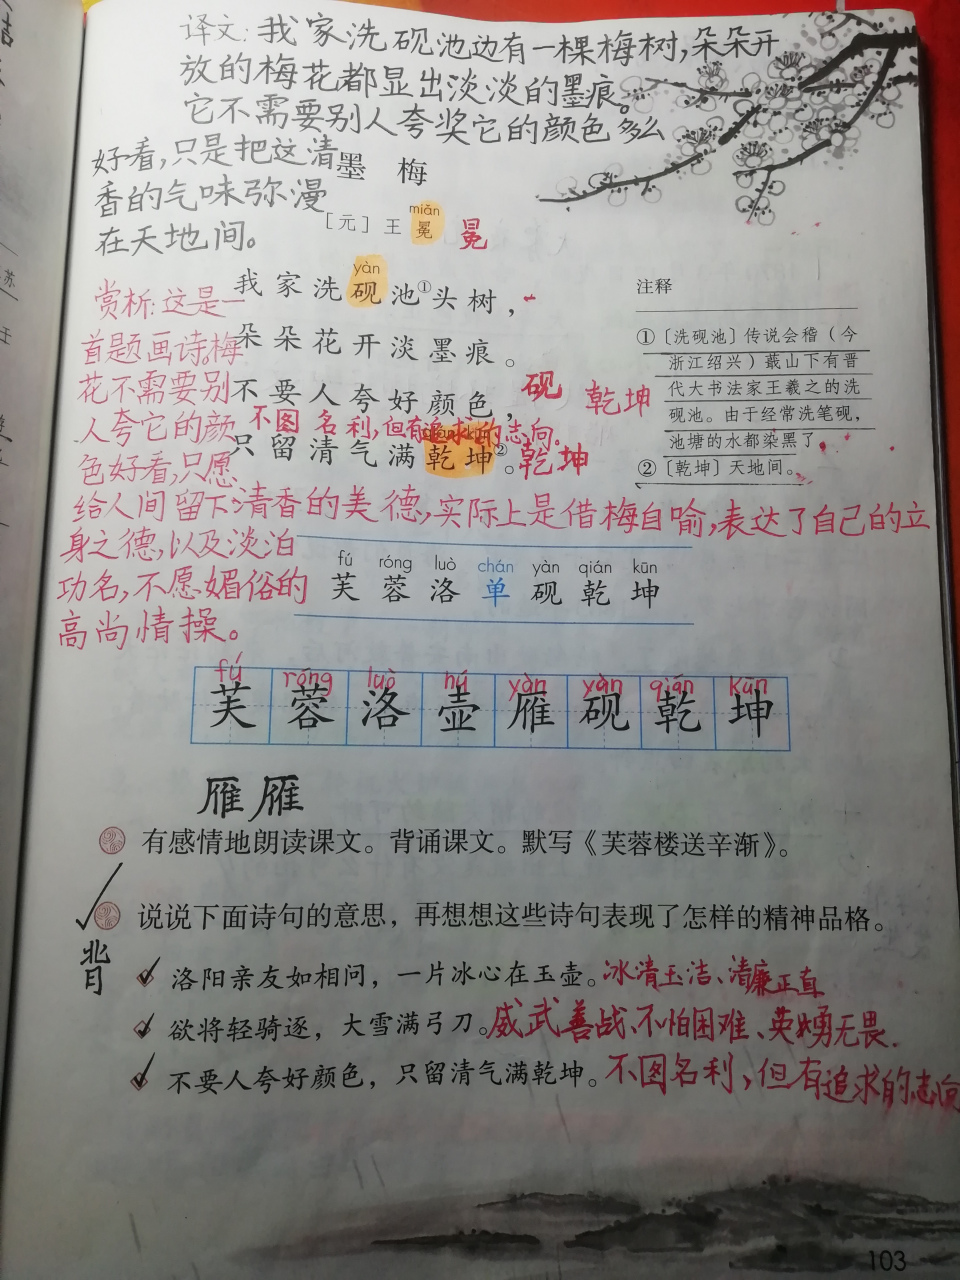 译文:我家洗砚池边有一棵梅树,朵朵开
放的梅花都显出淡淡的墨痕。
它不需要别人夸奖它的颜色多么
好看,只是把这清
香的气味弥漫
在天地间。
墨 梅
miǎn
［元］王 冕
冕
yàn
我家洗砚池①头树，
朵朵花开淡墨痕。
不要人夸好颜色，
砚 乾坤
不图名利,但有追求的志向.
只留清气满乾坤②。
乾坤
注释
①〔洗砚池〕传说会稽（今
浙江绍兴）蕺山下有晋
代大书法家王羲之的洗
砚池。由于经常洗笔砚，
池塘的水都染黑了。
②〔乾坤〕天地间。
赏析:这是一
首题画诗,梅
花不需要别
人夸它的颜
色好看,只愿
给人间留下清香的美德,实际上是借梅自喻,表达了自己的立
身之德,以及淡泊
功名,不愿媚俗的
高尚情操。
fú róng luò chán yàn qián kūn
芙 蓉 洛 单 砚 乾 坤
fú róng luò hú yàn yàn qián kūn
芙 蓉 洛 壶 雁 砚 乾 坤
雁 雁
有感情地朗读课文。背诵课文。默写《芙蓉楼送辛渐》。
说说下面诗句的意思，再想想这些诗句表现了怎样的精神品格。
背
洛阳亲友如相问，一片冰心在玉壶。冰清玉洁、清廉正直
欲将轻骑逐，大雪满弓刀。威武善战、不怕困难、英勇无畏.
不要人夸好颜色，只留清气满乾坤。不图名利,但有追求的志向
103